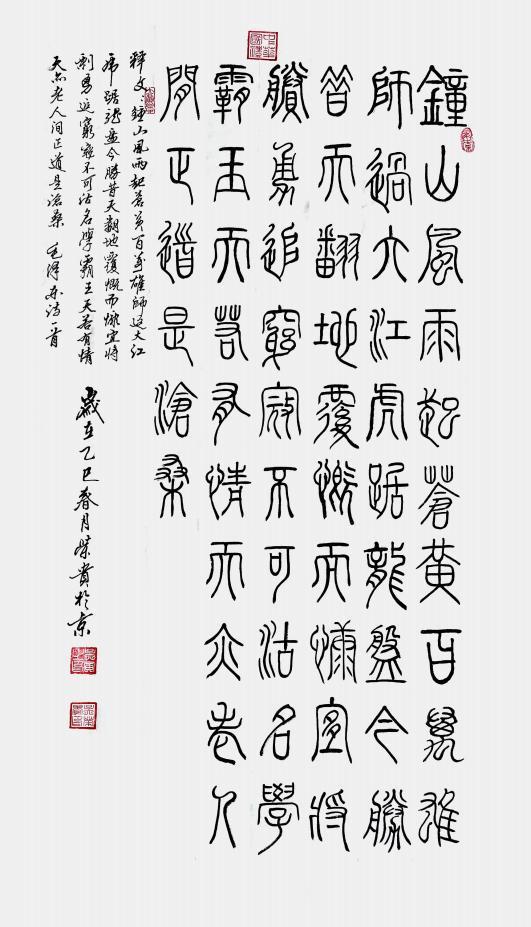 鐘山風雨起蒼黃百萬雄
師過大江虎踞龍盤今勝
昔天翻地覆慨而慷宜將
賸勇追窮寇不可沽名學
霸王天若有情天亦老人
間正道是滄桑
释文鍾山風雨起蒼黄百万雄師过大江
虎踞龍盘今勝昔天翻地覆慨而慷宜将
剩勇追窮寇不可沽名學霸王天若有情
天亦老人间正道是滄桑 毛澤东詩一首
歲在乙巳春月荣貴於京